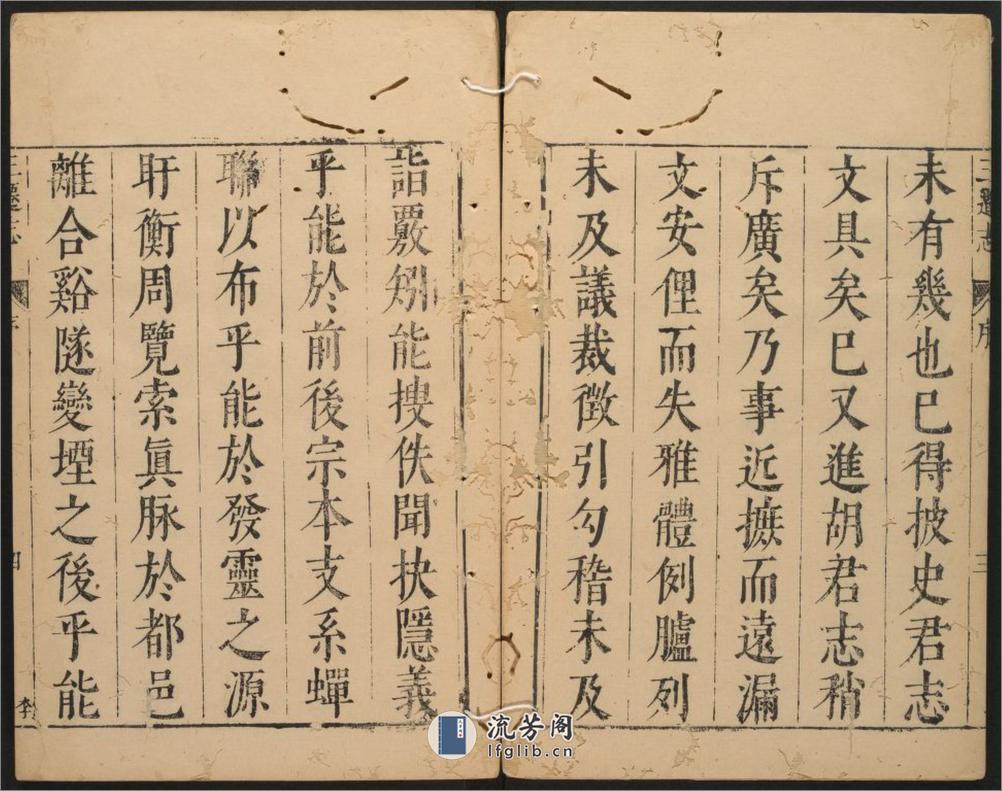 三遷志 序 三
未有幾也已得披史君志
文具矣已又進胡君志稍
斥廣矣乃事近摭而遠漏
文安俚而失雅體例臚列
未及議裁徵引勾稽未及
詣覈矧能搜佚聞抉隱義
乎能於前後宗本支系蟬
聯以布乎能於發靈之源
盱衡周覽索眞脉於都邑
離合谿隧變堙之後乎能
三遷志 四 李
流芳阁
lfglib.cn